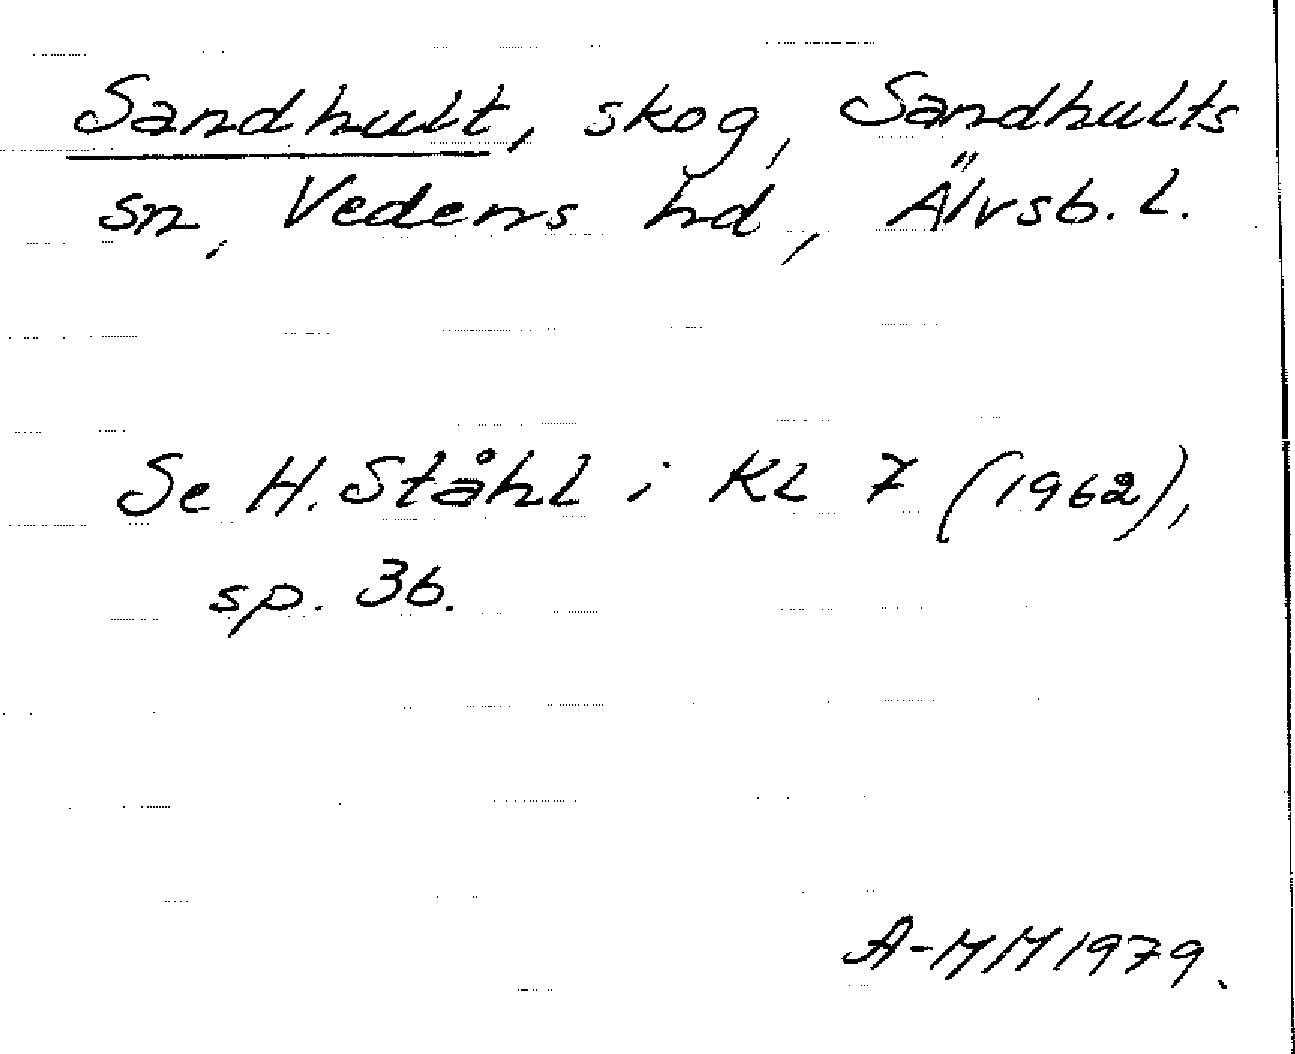 Sandhult, skog, Sandhults
sn, Vedens hd, Älvsb. L.
Se H. Ståhl i KL 7 (1962),
sp. 36.
A-MM 1979.